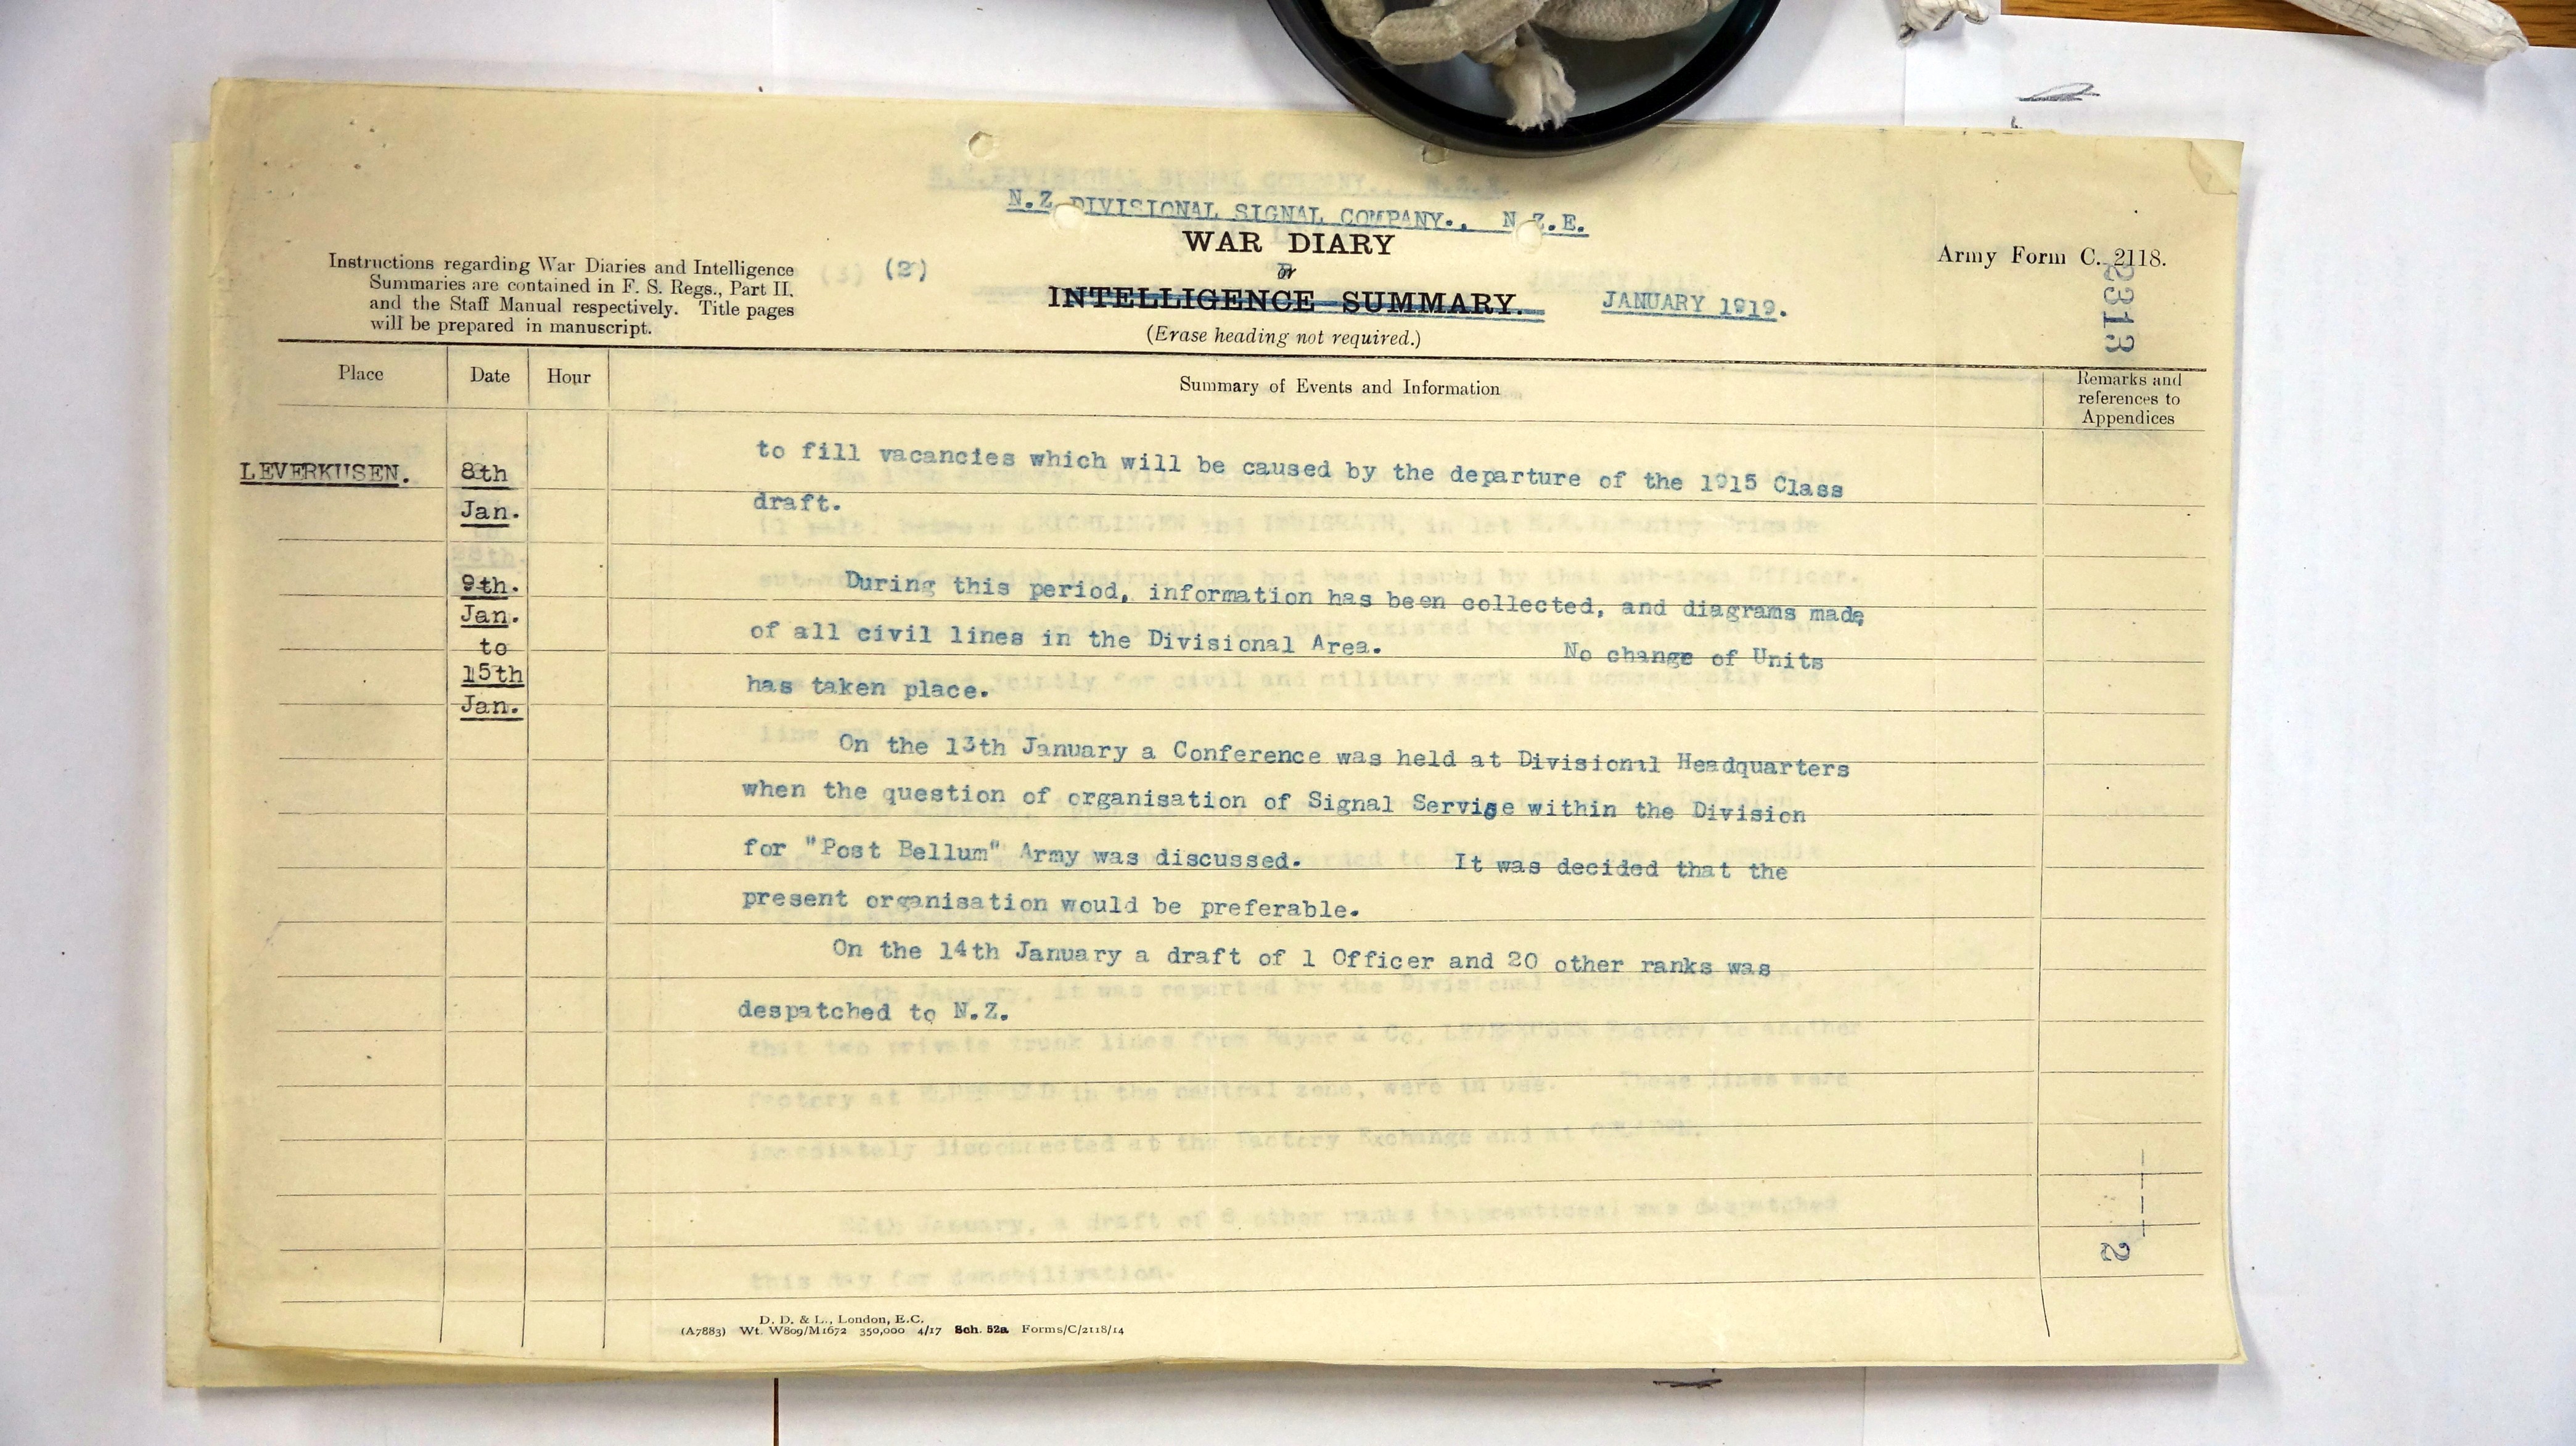 N.Z. DIVISIONAL SIGNAL COMPANY., N.Z.E.
WAR DIARY
or
INTELLIGENCE SUMMARY.
(Erase heading not required.)
JANUARY 1919.
Army Form C. 2118.
2313
Instructions regarding War Diaries and Intelligence
Summaries are contained in F. S. Regs., Part II.
and the Staff Manual respectively. Title pages
will be prepared in manuscript.
(2)
Place
Date
Hour
Summary of Events and Information
Remarks and
references to
Appendices
LEVERKUSEN.
8th
Jan.
to fill vacancies which will be caused by the departure of the 1915 Class
draft.
9th.
Jan.
to
15th
Jan.
During this period, information has been collected, and diagrams made,
of all civil lines in the Divisional Area. No change of Units
has taken place.
On the 13th January a Conference was held at Divisional Headquarters
when the question of organisation of Signal Service within the Division
for "Post Bellum" Army was discussed. It was decided that the
present organisation would be preferable.
On the 14th January a draft of 1 Officer and 20 other ranks was
despatched to N.Z.
2
D. D. & L., London, E.C.
(A7883) Wt. W809/M1672 350,000 4/17 Sch. 52a Forms/C/2118/14